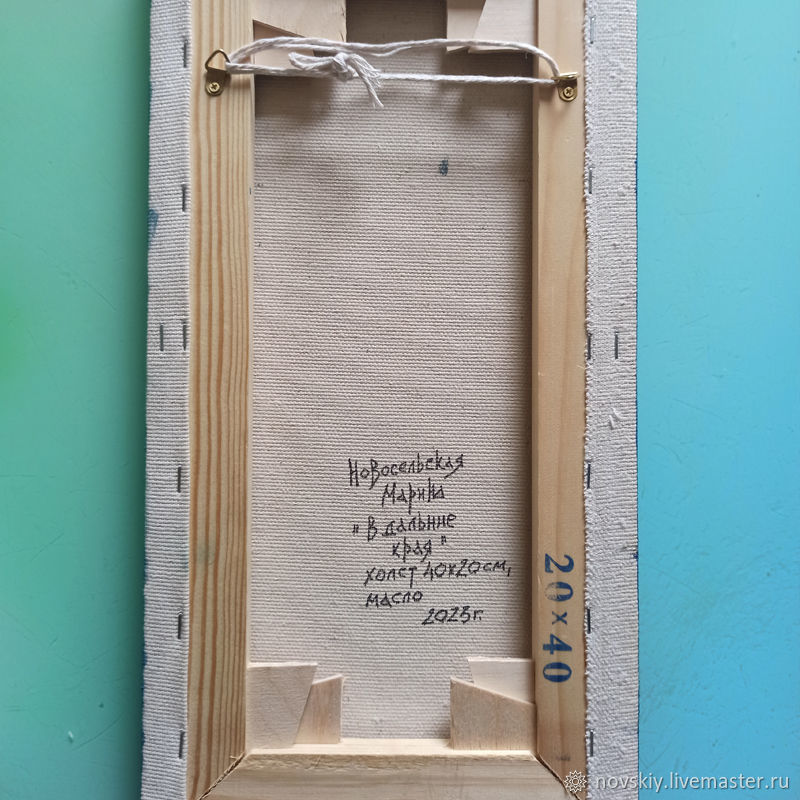 Новосельская
Марина
"В дальние
края"
холст 40х20см,
масло
2023г.
20×40
novskiy.livemaster.ru